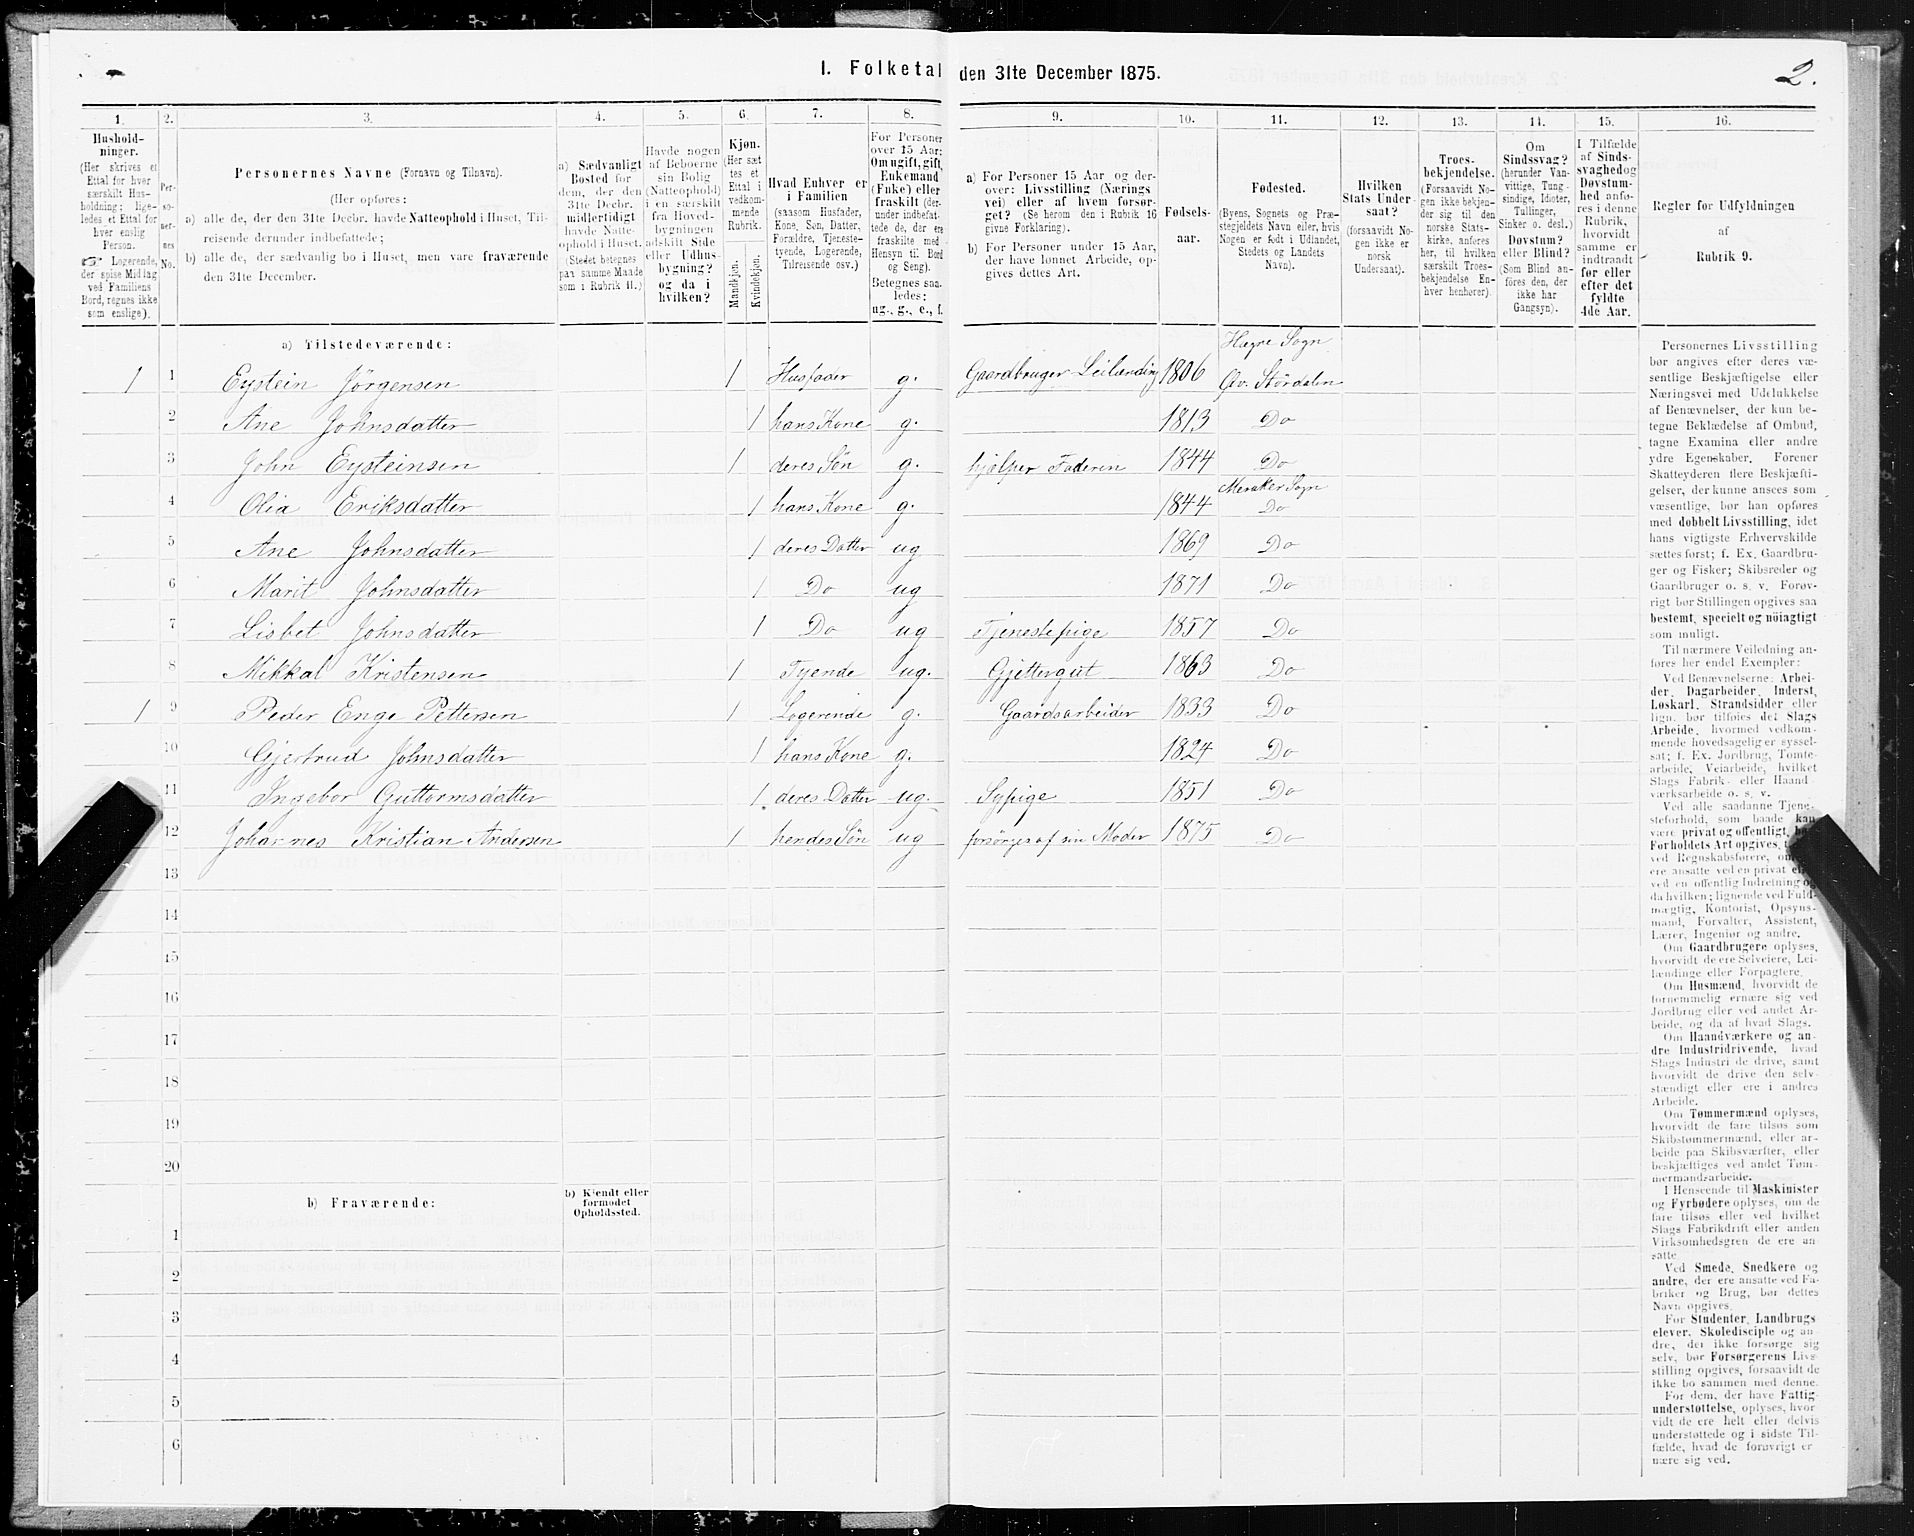 I. Folketal den 31te December 1875.
2.
1. 2. 3. 4. 5. 6. 7. 8. 9. 10. 11. 12. 13. 14. 15. 16.
Hushold-
ninger.
(Her skrives et
Ettal for hver
særskilt Hus-
holdning; lige-
ledes et Ettal for
hver enslig
Person.
☞ Logerende,
der spise Middag
ved Familiens
Bord, regnes ikke
som enslige).
Per-
so-
ner-
nes
No.
Personernes Navne (Fornavn og Tilnavn).
(Her opføres:
a) alle de, der den 31te Decbr. havde Natteophold i Huset, Til-
reisende derunder indbefattede;
b) alle de, der sædvanlig bo i Huset, men vare fraværende
den 31te December.
a) Sædvanligt
Bosted for
dem, der den
31te Decbr.
midlertidigt
havde Natte-
ophold i Huset.
(Stedet betegnes
paa samme Maade
som i Rubrik 11.)
Havde nogen
af Beboerne
sin Bolig
(Natteophold)
i en særskilt
fra Hoved-
bygningen
adskilt Side-
eller Udhus-
bygning?
og da i
hvilken?
Kjøn.
(Her sæt-
tes et
Ettal i
vedkom-
mende
Rubrik.
Mandkjøn.
Kvindekjøn.
Hvad Enhver er
i Familien
(saasom Husfader,
Kone, Søn, Datter,
Forældre, Tjeneste-
tyende, Logerende,
Tilreisende osv.)
For Personer
over 15 Aar:
Om ugift, gift,
Enkemand
(Enke) eller
fraskilt (der-
under indbefat-
tede de, der ere
fraskilte med
Hensyn til Bord
og Seng).
Betegnes saa-
ledes:
ug., g., e., f.
a) For Personer 15 Aar og der-
over: Livsstilling (Nærings-
vei) eller af hvem forsør-
get? (Se herom den i Rubrik 16
givne Forklaring).
b) For Personer under 15 Aar,
der have lønnet Arbeide, op-
gives dettes Art.
Fødsels-
aar.
Fødested.
(Byens, Sognets og Præ-
stegjeldets Navn eller, hvis
Nogen er født i Udlandet,
Stedets og Landets
Navn).
Hvilken
Stats Under-
saat?
(forsaavidt No-
gen ikke er
norsk
Undersaat).
Troes-
bekjendelse.
(Forsaavidt No-
gen ikke bekjen-
der sig til den
norske Stats-
kirke, anføres
her, til hvilken
særskilt Troes-
bekjendelse En-
hver henhører).
Om
Sindssvag?
(herunder Van-
vittige, Tung-
sindige, Idioter,
Tullinger,
Sinker o. desl.)
Døvstum?
eller Blind?
(Som Blind an-
føres den, der
ikke har
Gangsyn).
I Tilfælde
af Sinds-
svaghed og
Døvstum-
hed anfø-
res i denne
Rubrik,
hvorvidt
samme er
indtraadt
før eller
efter det
fyldte
4de Aar.
Regler for Udfyldningen
af
Rubrik 9.
a) Tilstedeværende:
Hegre Sogn
1 1 Eystein Jørgensen 1 Husfader g. Gaardbruger Leilænding 1806 Øv. Størdalen
2 Ane Johnsdatter 1 hans Kone g. 1813 Do
3 John Eysteinsen 1 deres Søn g. hjælper Faderen 1844 Do
Meraker Sogn
4 Olia Eriksdatter 1 hans Kone g. 1844 Do
5 Ane Johnsdatter 1 deres Datter ug 1869 Do
6 Marit Johnsdatter 1 Do ug 1871 Do
7 Lisbet Johnsdatter 1 Do ug Tjenestepige 1857 Do
8 Mikkal Kristensen 1 Tyende ug. Gjettergut 1863 Do
1 9 Peder Enge Pettersen 1 Logerende g. Gaardsarbeider 1833 Do
10 Gjertrud Johnsdatter 1 hans Kone g. 1824 Do
11 Ingebor Guttormsdatter 1 deres Datter ug. Sypige 1851 Do
12 Johannes Kristian Andersen 1 hendes Søn ug forsørges af sin Moder 1875 Do
13
14
15
16
17
18
19
20
b) Fraværende:
b) Kjendt eller
formodet
Opholdssted.
1
2
3
4
5
6
Personernes Livsstilling
bør angives efter deres væ-
sentlige Beskjæftigelse eller
Næringsvei med Udelukkelse
af Benævnelser, der kun be-
tegne Beklædelse af Ombud,
tagne Examina eller andre
ydre Egenskaber. Forener
Skatteyderen flere Beskjæfti-
gelser, der kunne ansees som
væsentlige, bør han opføres
med dobbelt Livsstilling, idet
hans vigtigste Erhvervskilde
sættes først; f. Ex. Gaardbru-
ger og Fisker; Skibsreder og
Gaardbruger o. s. v. Forøv-
rigt bør Stillingen opgives saa
bestemt, specielt og nöiagtigt
som muligt.
Til nærmere Veiledning an-
føres her endel Exempler:
Ved Benævnelserne: Arbei-
der, Dagarbeider, Inderst,
Løskarl, Strandsidder eller
lign. bør tilføies det Slags
Arbeide, hvormed vedkom-
mende hovedsagelig er syssel-
sat; f. Ex. Jordbrug, Tomte-
arbeide, Veiarbeide, hvilket
Slags Fabrik- eller Haand-
værksarbeide o. s. v.
Ved alle saadanne Tjene-
steforhold, som baade kan
være privat og offentligt,
Forholdets Art opgives,
ved Regnskabsførere,
ere ansatte ved en privat
ved en offentlig Indretning og
da hvilken; lignende ved Fuld-
mægtig, Kontorist, Opsyns-
mand, Forvalter, Assistent,
Lærer, Ingeniør og andre.
Om Gaardbrugere oplyses,
hvorvidt de ere Selveiere, Lei-
lændinge eller Forpagtere.
Om Husmænd, hvorvidt de
fornemmelig ernære sig ved
Jordbrug eller ved andet Ar-
beide, og da af hvad Slags.
Om Haandværkere og an-
dre Industridrivende, hvad
Slags Industri de drive, samt
hvorvidt de drive den selv-
stændigt eller ere i andres
Arbeide.
Om Tømmermænd oplyses,
hvorvidt de fare tilsøs som
Skibstømmermænd, eller ar-
beide paa Skibsværfter, eller
beskjæftiges ved andet Tøm-
mermandsarbeide.
I Henseende til Maskinister
og Fyrbødere oplyses, om de
fare tilsøs eller ved hvilket
Slags Fabrikdrift eller anden
Virksomhedsgren de ere an-
satte.
Ved Smede, Snedkere og
andre, der ere ansatte ved Fa-
briker og Brug, bør dettes
Navn opgives.
For Studenter, Landbrugs-
elever, Skoledisciple og an-
dre, der ikke forsørge sig
selv, bør Forsørgerens Livs-
stilling opgives, forsaavidt de
ikke bo sammen med denne.
For dem, der have Fattig-
understøttelse, oplyses, hvor-
vidt de ere helt eller delvis
understøttede og i sidste Til-
fælde, hvad de forøvrigt er-
nære sig ved.